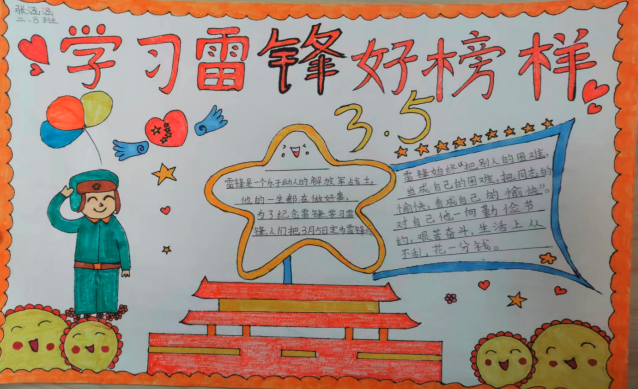 张
二.3班
学习雷锋好榜样
3.5
雷锋是一个乐于助人的解放军战士,
他的一生都在做好事。
为了纪念雷锋学习雷
锋,人们把3月5日定为雷锋
雷锋始终"把别人的困难,
当成自己的困难,把同志的
愉快,看成自己的愉快"。
对自己他一向勤俭节
约,艰苦奋斗,生活上从
不乱花一分钱。